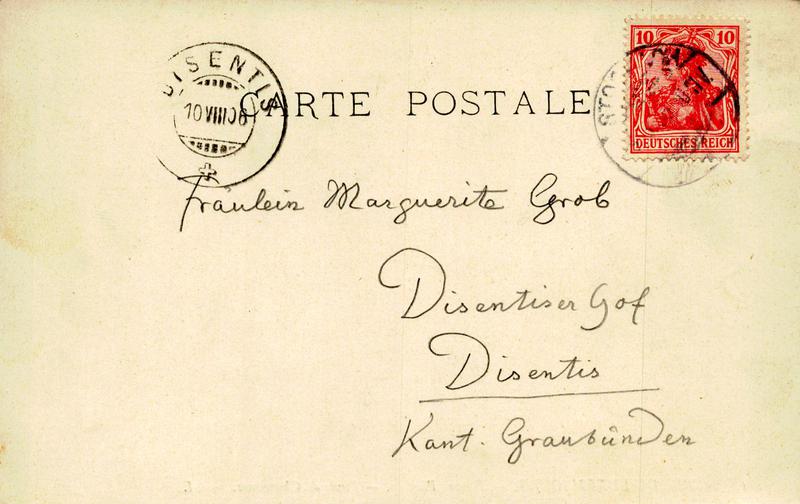 DISENTIS
10 VIII 06
CARTE POSTALE
10 10
DEUTSCHES REICH
Fräulein Marguerite Grob
Disentiser Hof
Disentis
Kant. Graubünden